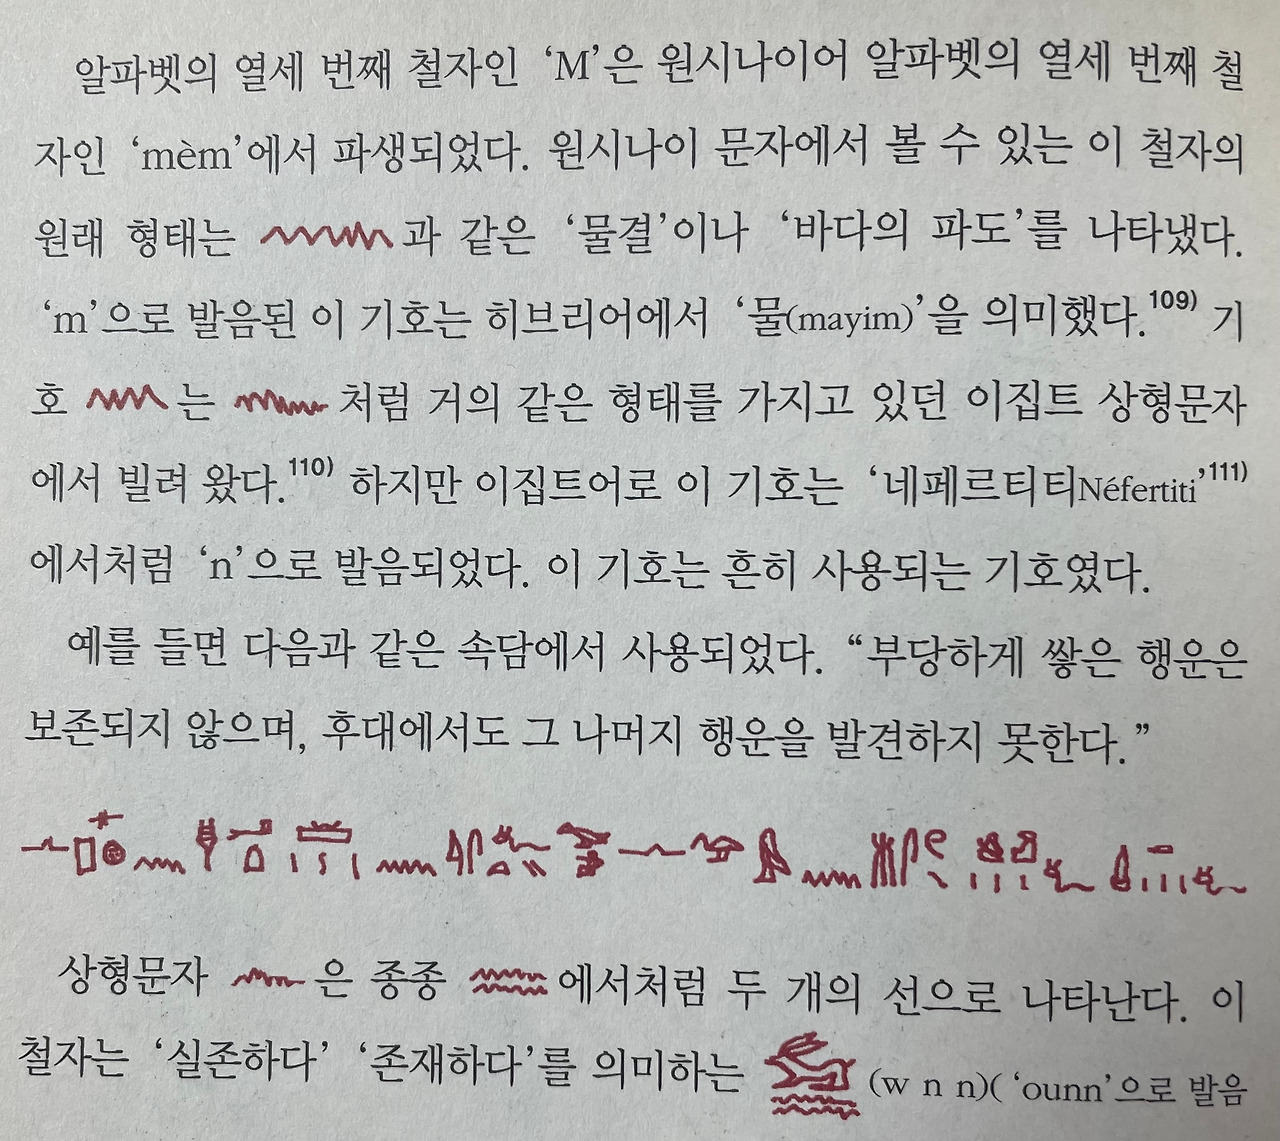 알파벳의 열세 번째 철자인 ‘M’은 원시나이어 알파벳의 열세 번째 철
자인 ‘mèm’에서 파생되었다. 원시나이 문자에서 볼 수 있는 이 철자의
원래 형태는 과 같은 ‘물결’이나 ‘바다의 파도’를 나타냈다.
‘m’으로 발음된 이 기호는 히브리어에서 ‘물(mayim)’을 의미했다.109) 기
호 는 처럼 거의 같은 형태를 가지고 있던 이집트 상형문자
에서 빌려 왔다.110) 하지만 이집트어로 이 기호는 ‘네페르티티Néfertiti’111)
에서처럼 ‘n’으로 발음되었다. 이 기호는 흔히 사용되는 기호였다.
예를 들면 다음과 같은 속담에서 사용되었다. “부당하게 쌓은 행운은
보존되지 않으며, 후대에서도 그 나머지 행운을 발견하지 못한다.”
상형문자 은 종종 에서처럼 두 개의 선으로 나타난다. 이
철자는 ‘실존하다’ ‘존재하다’를 의미하는 (w n n)( ‘ounn’으로 발음